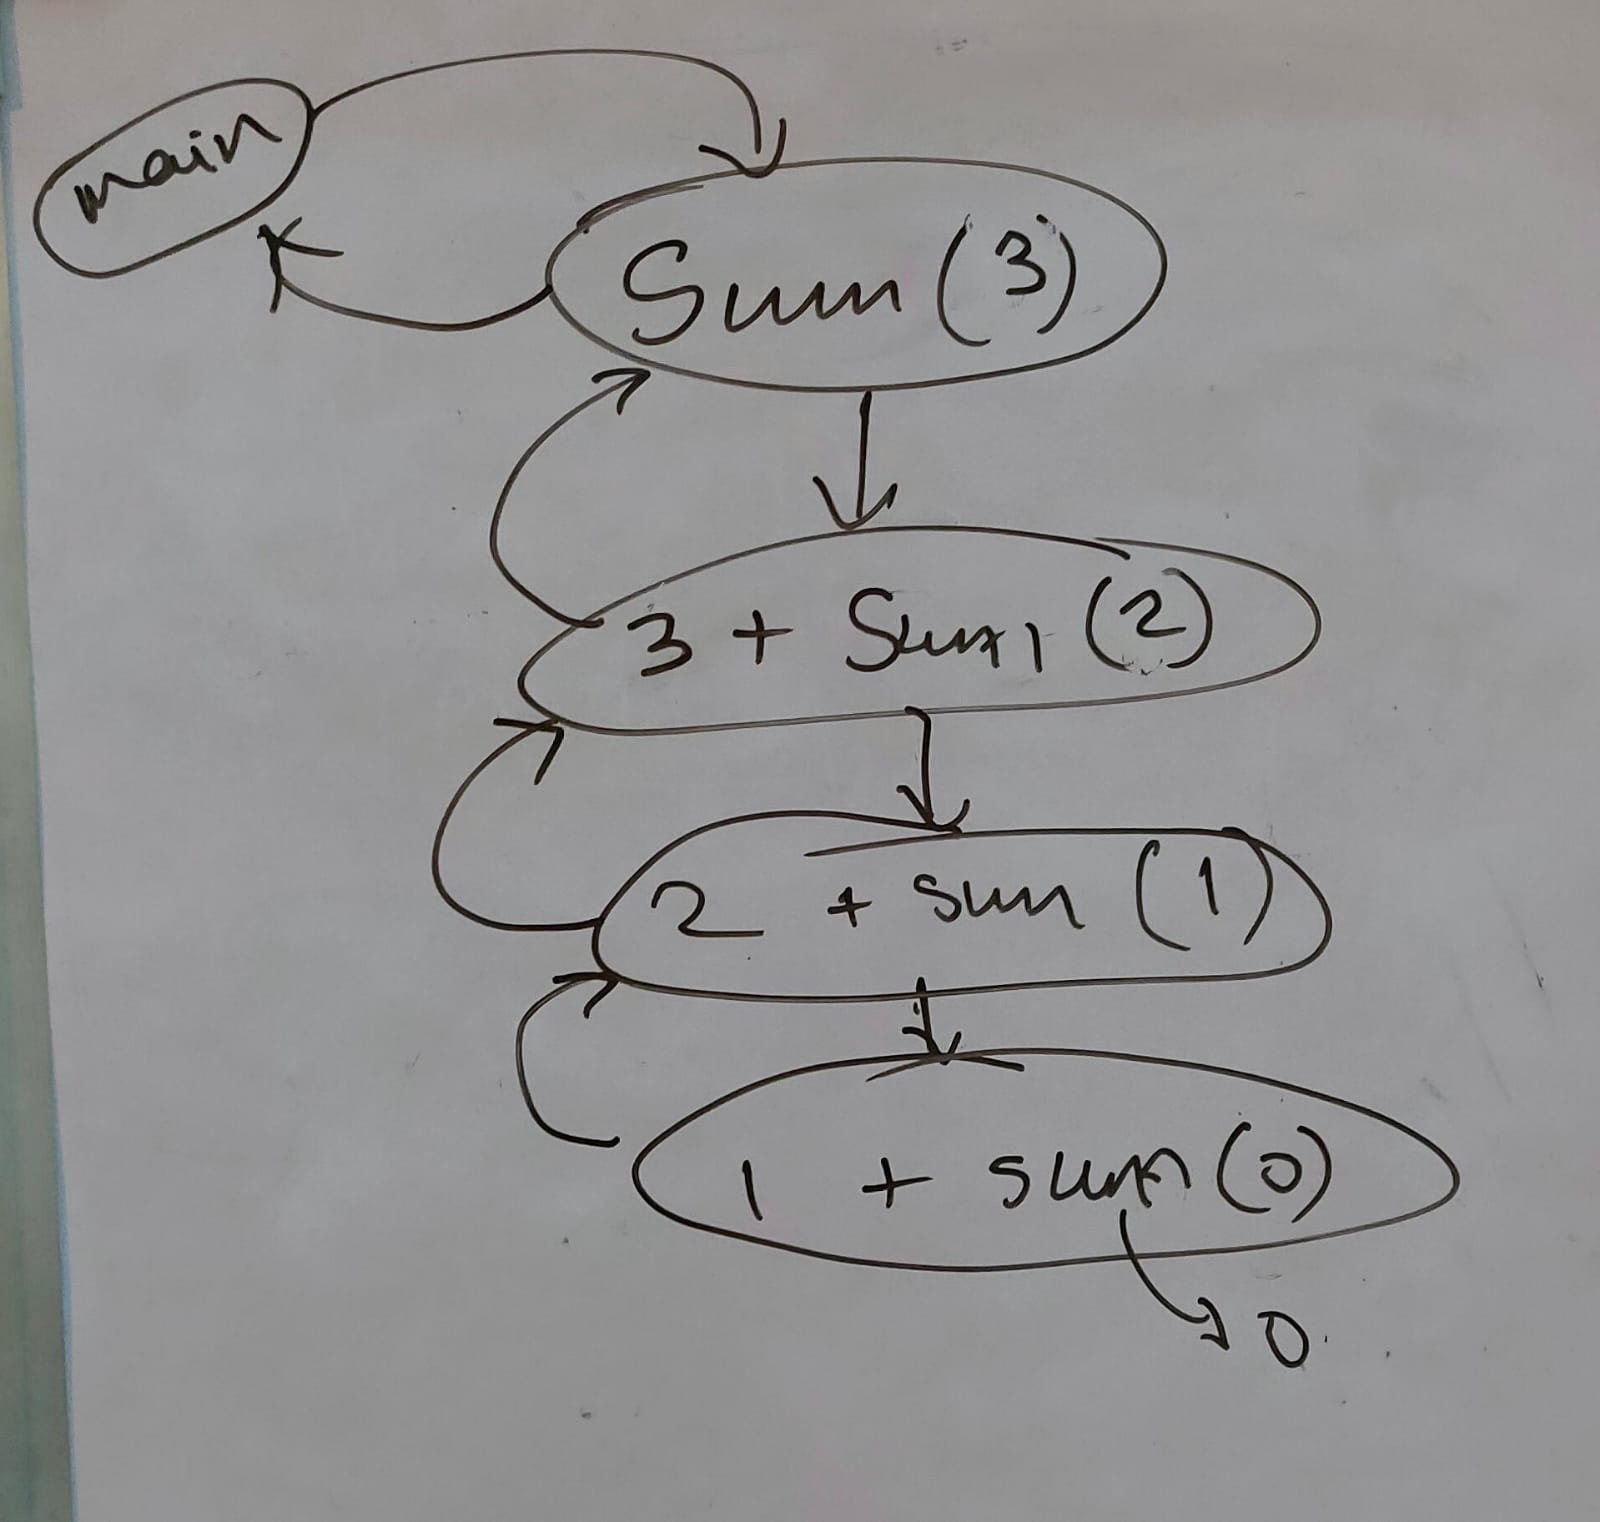 main
Sum (3)
3 + Sum (2)
2 + sum (1)
1 + sum (0)
0